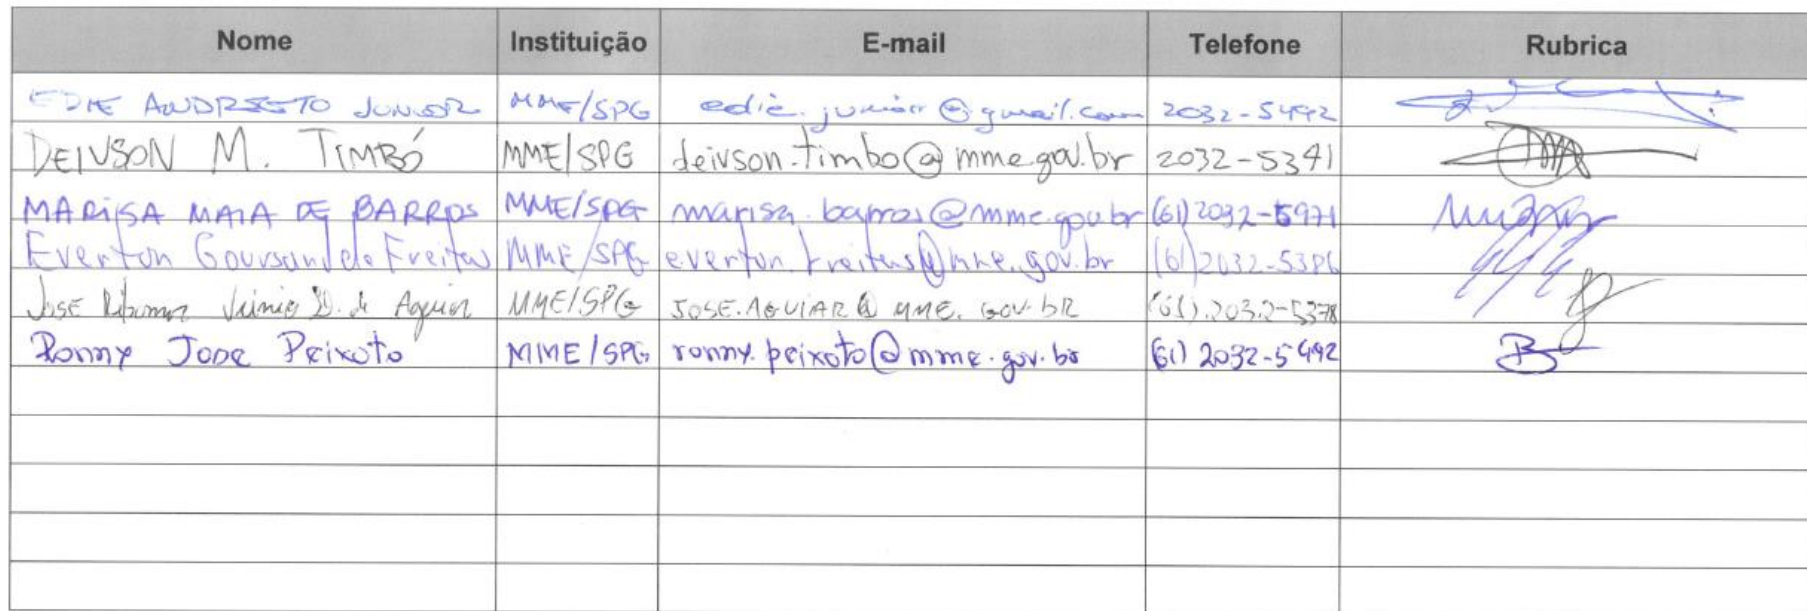 Nome Instituição E-mail Telefone Rubrica
EDIE ANDREETO JUNIOR MME/SPG edie.junior@gmail.com 2032-5492
DEIVSON M. TIMBÓ MME/SPG deivson.timbo@mme.gov.br 2032-5341
MARISA MAIA DE BARROS MME/SPG marisa.barros@mme.gov.br (61) 2032-5971
Everton de Freitas MME/SPG everton.freitas@mme.gov.br (61) 2032-5386
José de Aguiar MME/SPG JOSE.AGUIAR@MME.GOV.BR (61).2032-5378
Ronny Jose Peixoto MME/SPG ronny.peixoto@mme.gov.br (61) 2032-5492